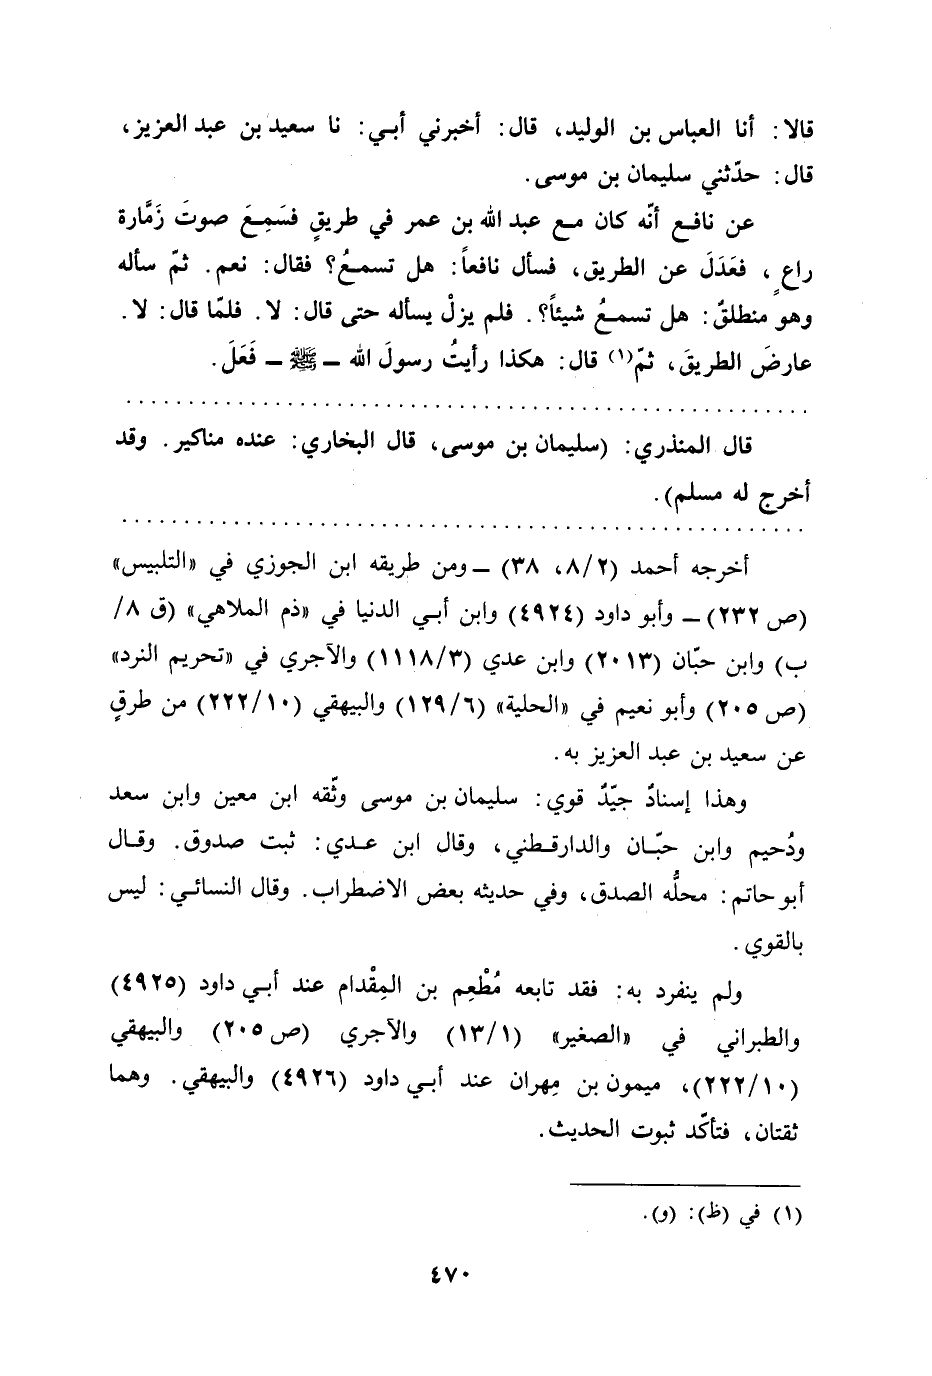 قالا: أنا العباس بن الوليد، قال: أخبرني أبي: نا سعيد بن عبد العزيز،
قال: حدّثني سليمان بن موسى.
عن نافع أنّه كان مع عبد الله بن عمر في طريقٍ فسَمِعَ صوتَ زَمَّارة
راعٍ، فعَدَلَ عن الطريق، فسأل نافعاً: هل تسمعُ؟ فقال: نعم. ثمّ سأله
وهو منطلقٌ: هل تسمعُ شيئاً؟. فلم يزلْ يسأله حتى قال: لا. فلمّا قال: لا.
عارضَ الطريقَ، ثمّ(١) قال: هكذا رأيتُ رسولَ الله ــ ﷺ ــ فَعَلَ.
قال المنذري: (سليمان بن موسى، قال البخاري: عنده مناكير. وقد
أخرج له مسلم).
أخرجه أحمد (٨/٢، ٣٨) ــ ومن طريقه ابن الجوزي في «التلبيس»
(ص ٢٣٢) ــ وأبو داود (٤٩٢٤) وابن أبي الدنيا في «ذم الملاهي» (ق ٨/
ب) وابن حبّان (٢٠١٣) وابن عدي (١١١٨/٣) والآجري في «تحريم النرد»
(ص ٢٠٥) وأبو نعيم في «الحلية» (١٢٩/٦) والبيهقي (٢٢٢/١٠) من طرقٍ
عن سعيد بن عبد العزيز به.
وهذا إسنادٌ جيّدٌ قوي: سليمان بن موسى وثّقه ابن معين وابن سعد
ودُحيم وابن حبّان والدارقطني، وقال ابن عدي: ثبت صدوق. وقال
أبو حاتم: محلُّه الصدق، وفي حديثه بعض الاضطراب. وقال النسائي: ليس
بالقوي.
ولم ينفرد به: فقد تابعه مُطْعِم بن المِقْدام عند أبي داود (٤٩٢٥)
والطبراني في «الصغير» (١٣/١) والآجري (ص ٢٠٥) والبيهقي
(٢٢٢/١٠)، ميمون بن مِهران عند أبي داود (٤٩٢٦) والبيهقي. وهما
ثقتان، فتأكّد ثبوت الحديث.
(١) في (ظ): (و).
٤٧٠